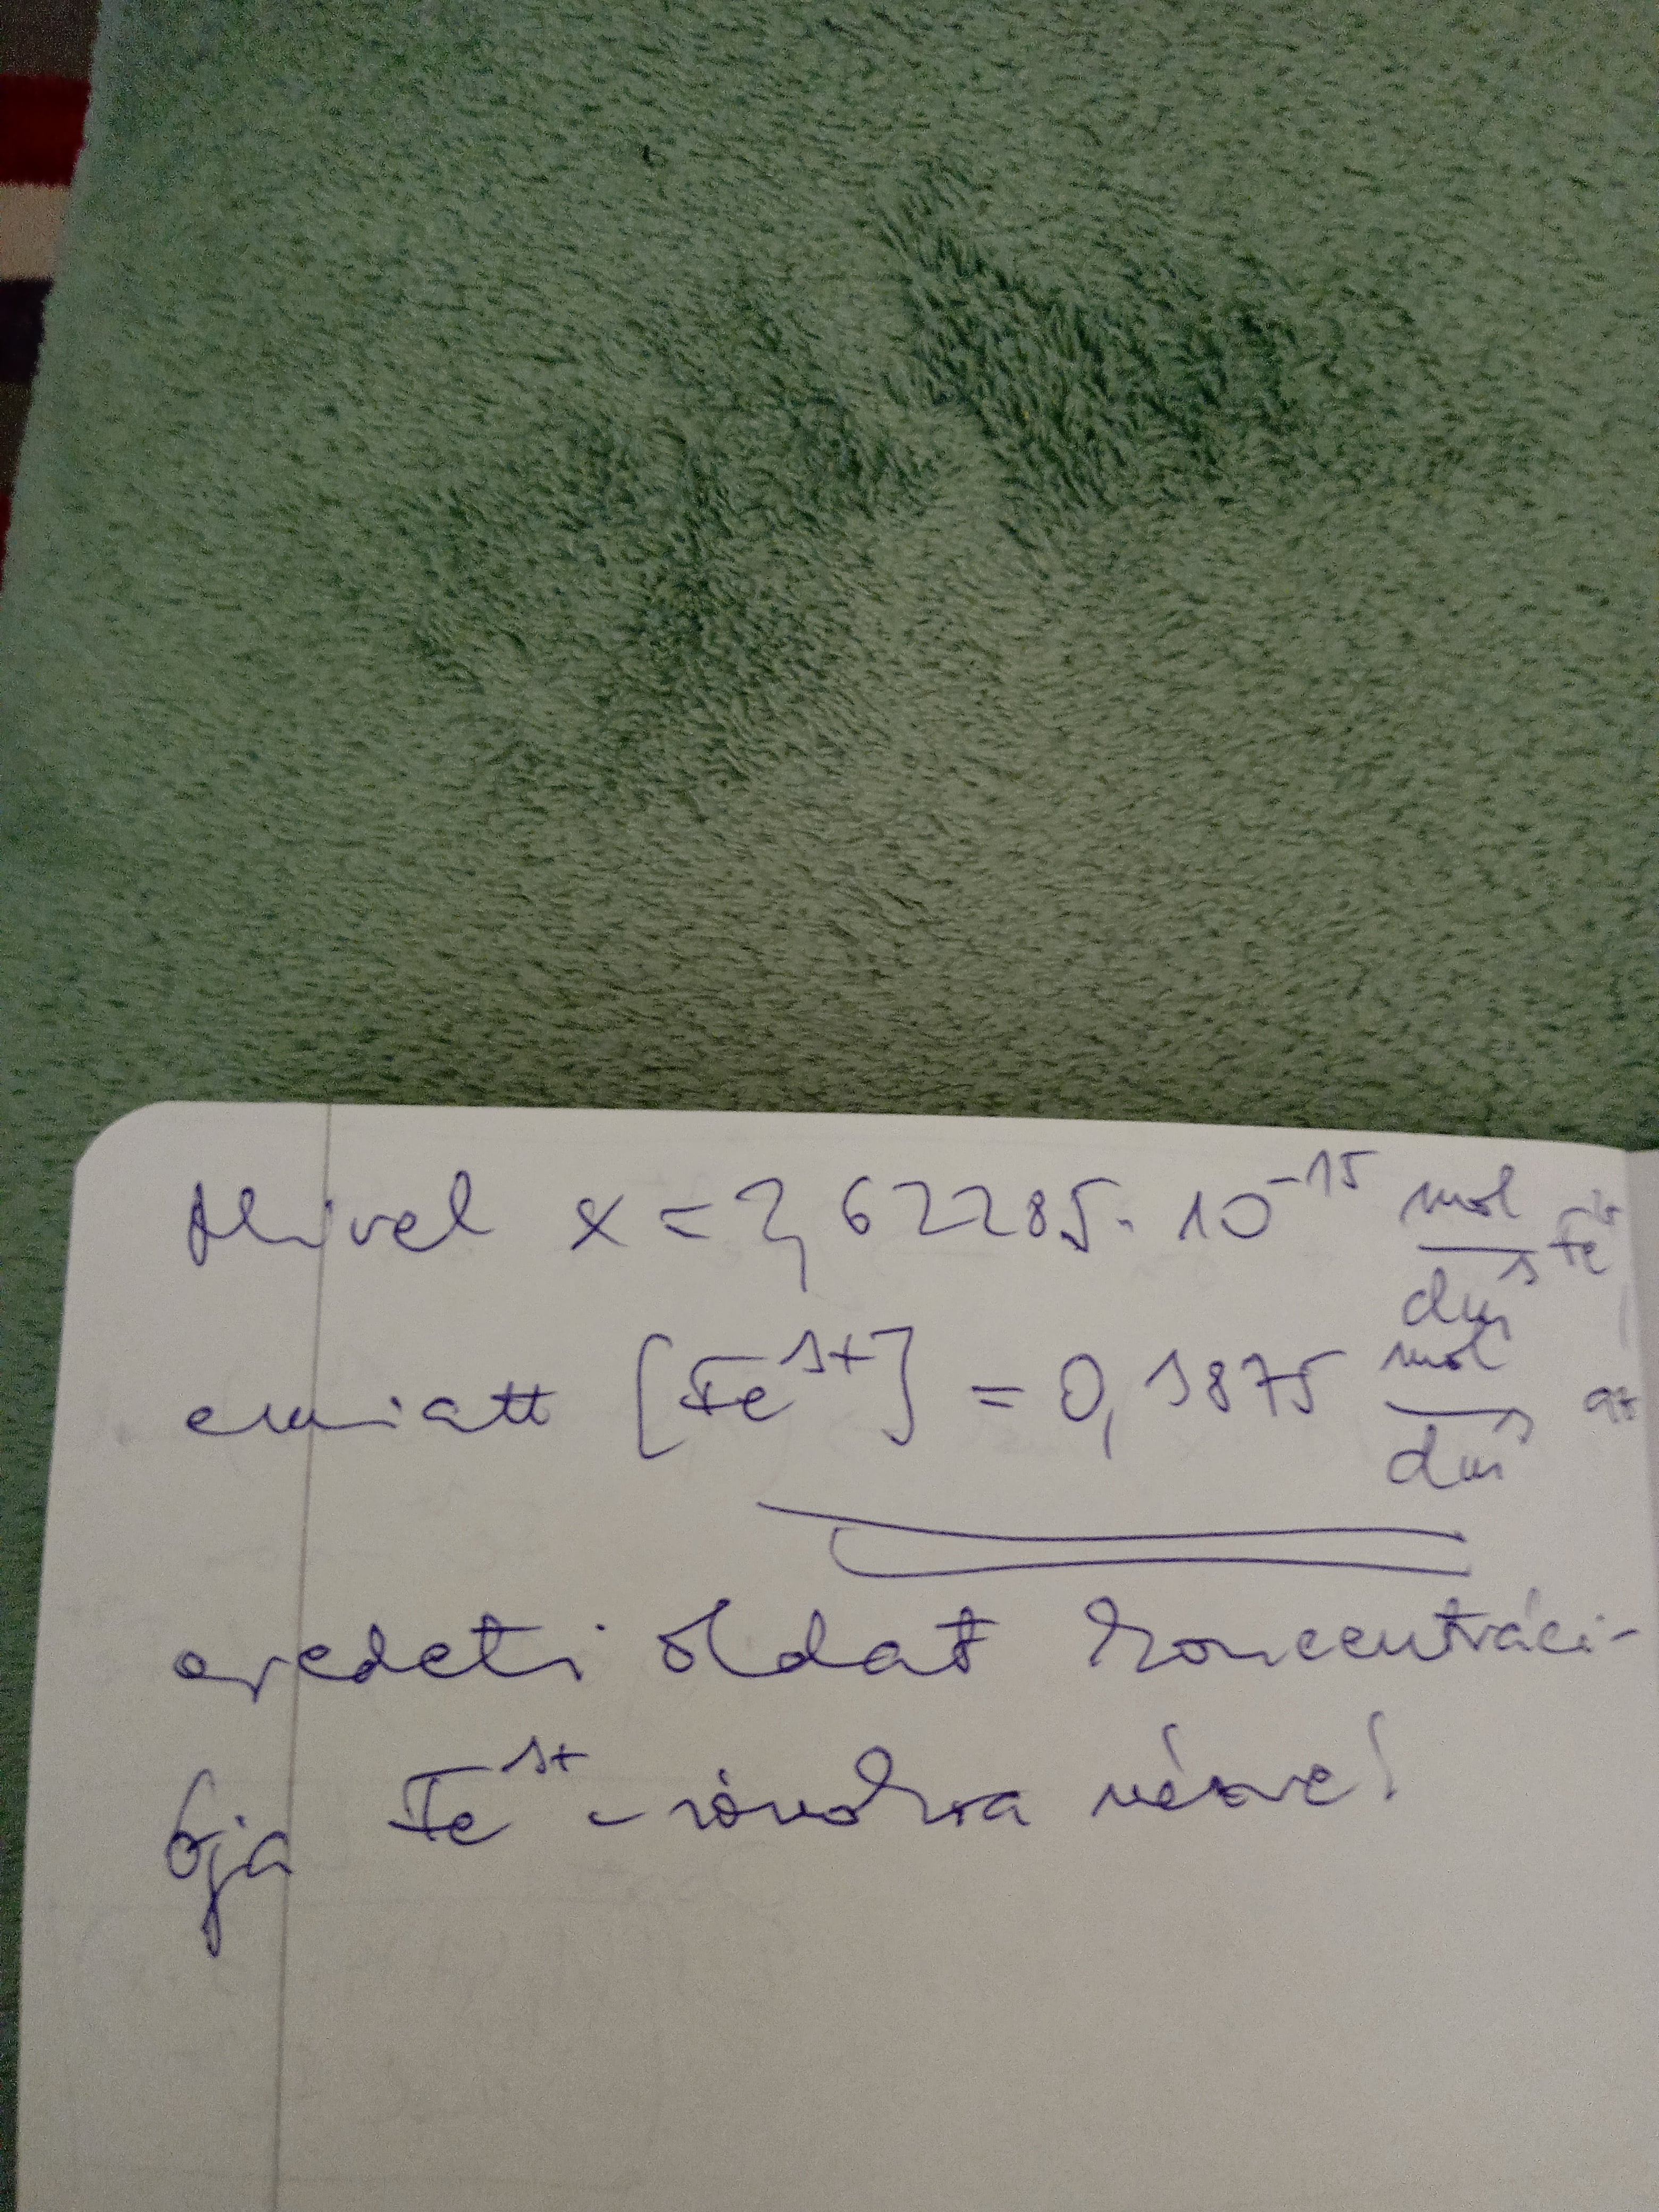 Mivel x = 2,62285 · 10⁻¹⁵ mol/dm³ Fe
emiatt [Fe³⁺] = 0,3875 mol/dm³ az
eredeti oldat koncentráci-
ója Fe³⁺-ionokra nézve!